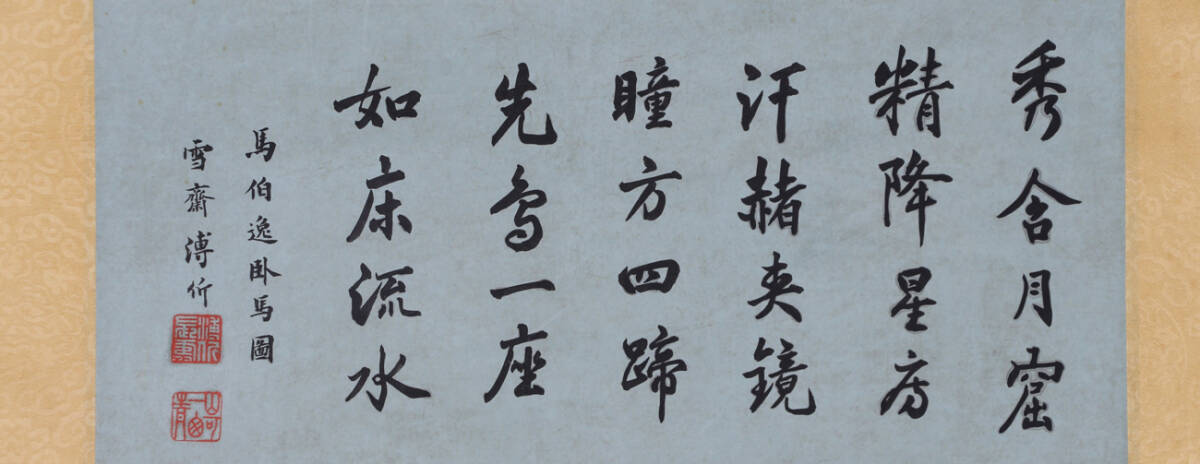 秀含月窟
精降星房
汗赭夾鏡
瞳方四蹄
先鳥一座
如床流水
馬伯逸臥馬圖
雪齋溥伒